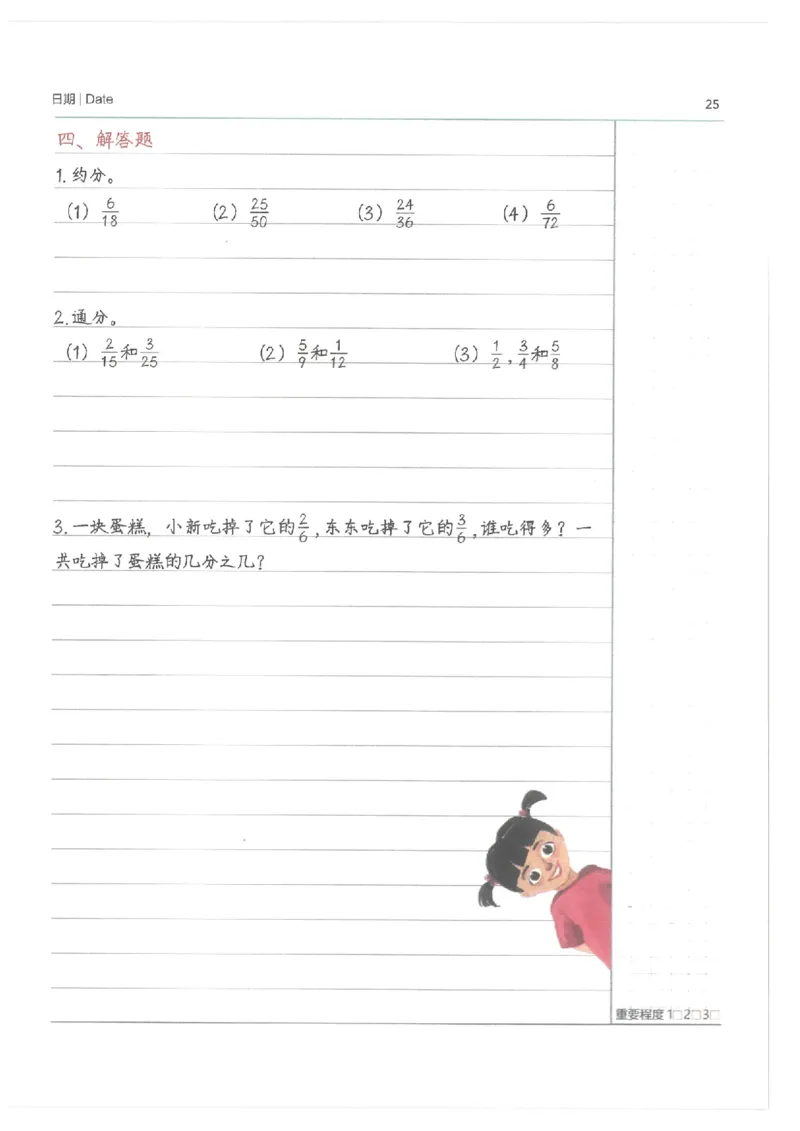 日期 | Date 25
四、解答题
1.约分。
(1) 6/18 (2) 25/50 (3) 24/36 (4) 6/72
2.通分。
(1) 2/15和3/25 (2) 5/9和1/12 (3) 1/2,3/4和5/8
3.一块蛋糕,小新吃掉了它的2/6,东东吃掉了它的3/6,谁吃得多?一
共吃掉了蛋糕的几分之几?
重要程度 1□2□3□